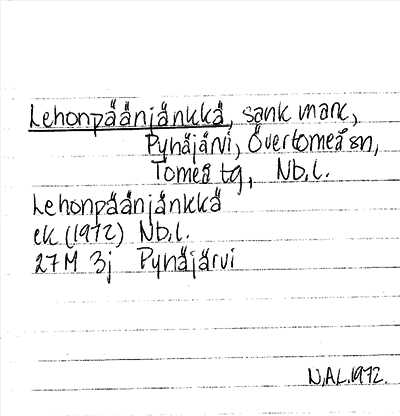 Lehonpäänjänkkä, sank mark,
Pyhäjärvi, Övertorneå sn,
Torneå tg, Nb.l.
Lehonpäänjänkkä
ek (1972) Nb.l.
27M 3j Pyhäjärvi
N.A.L. 1972.